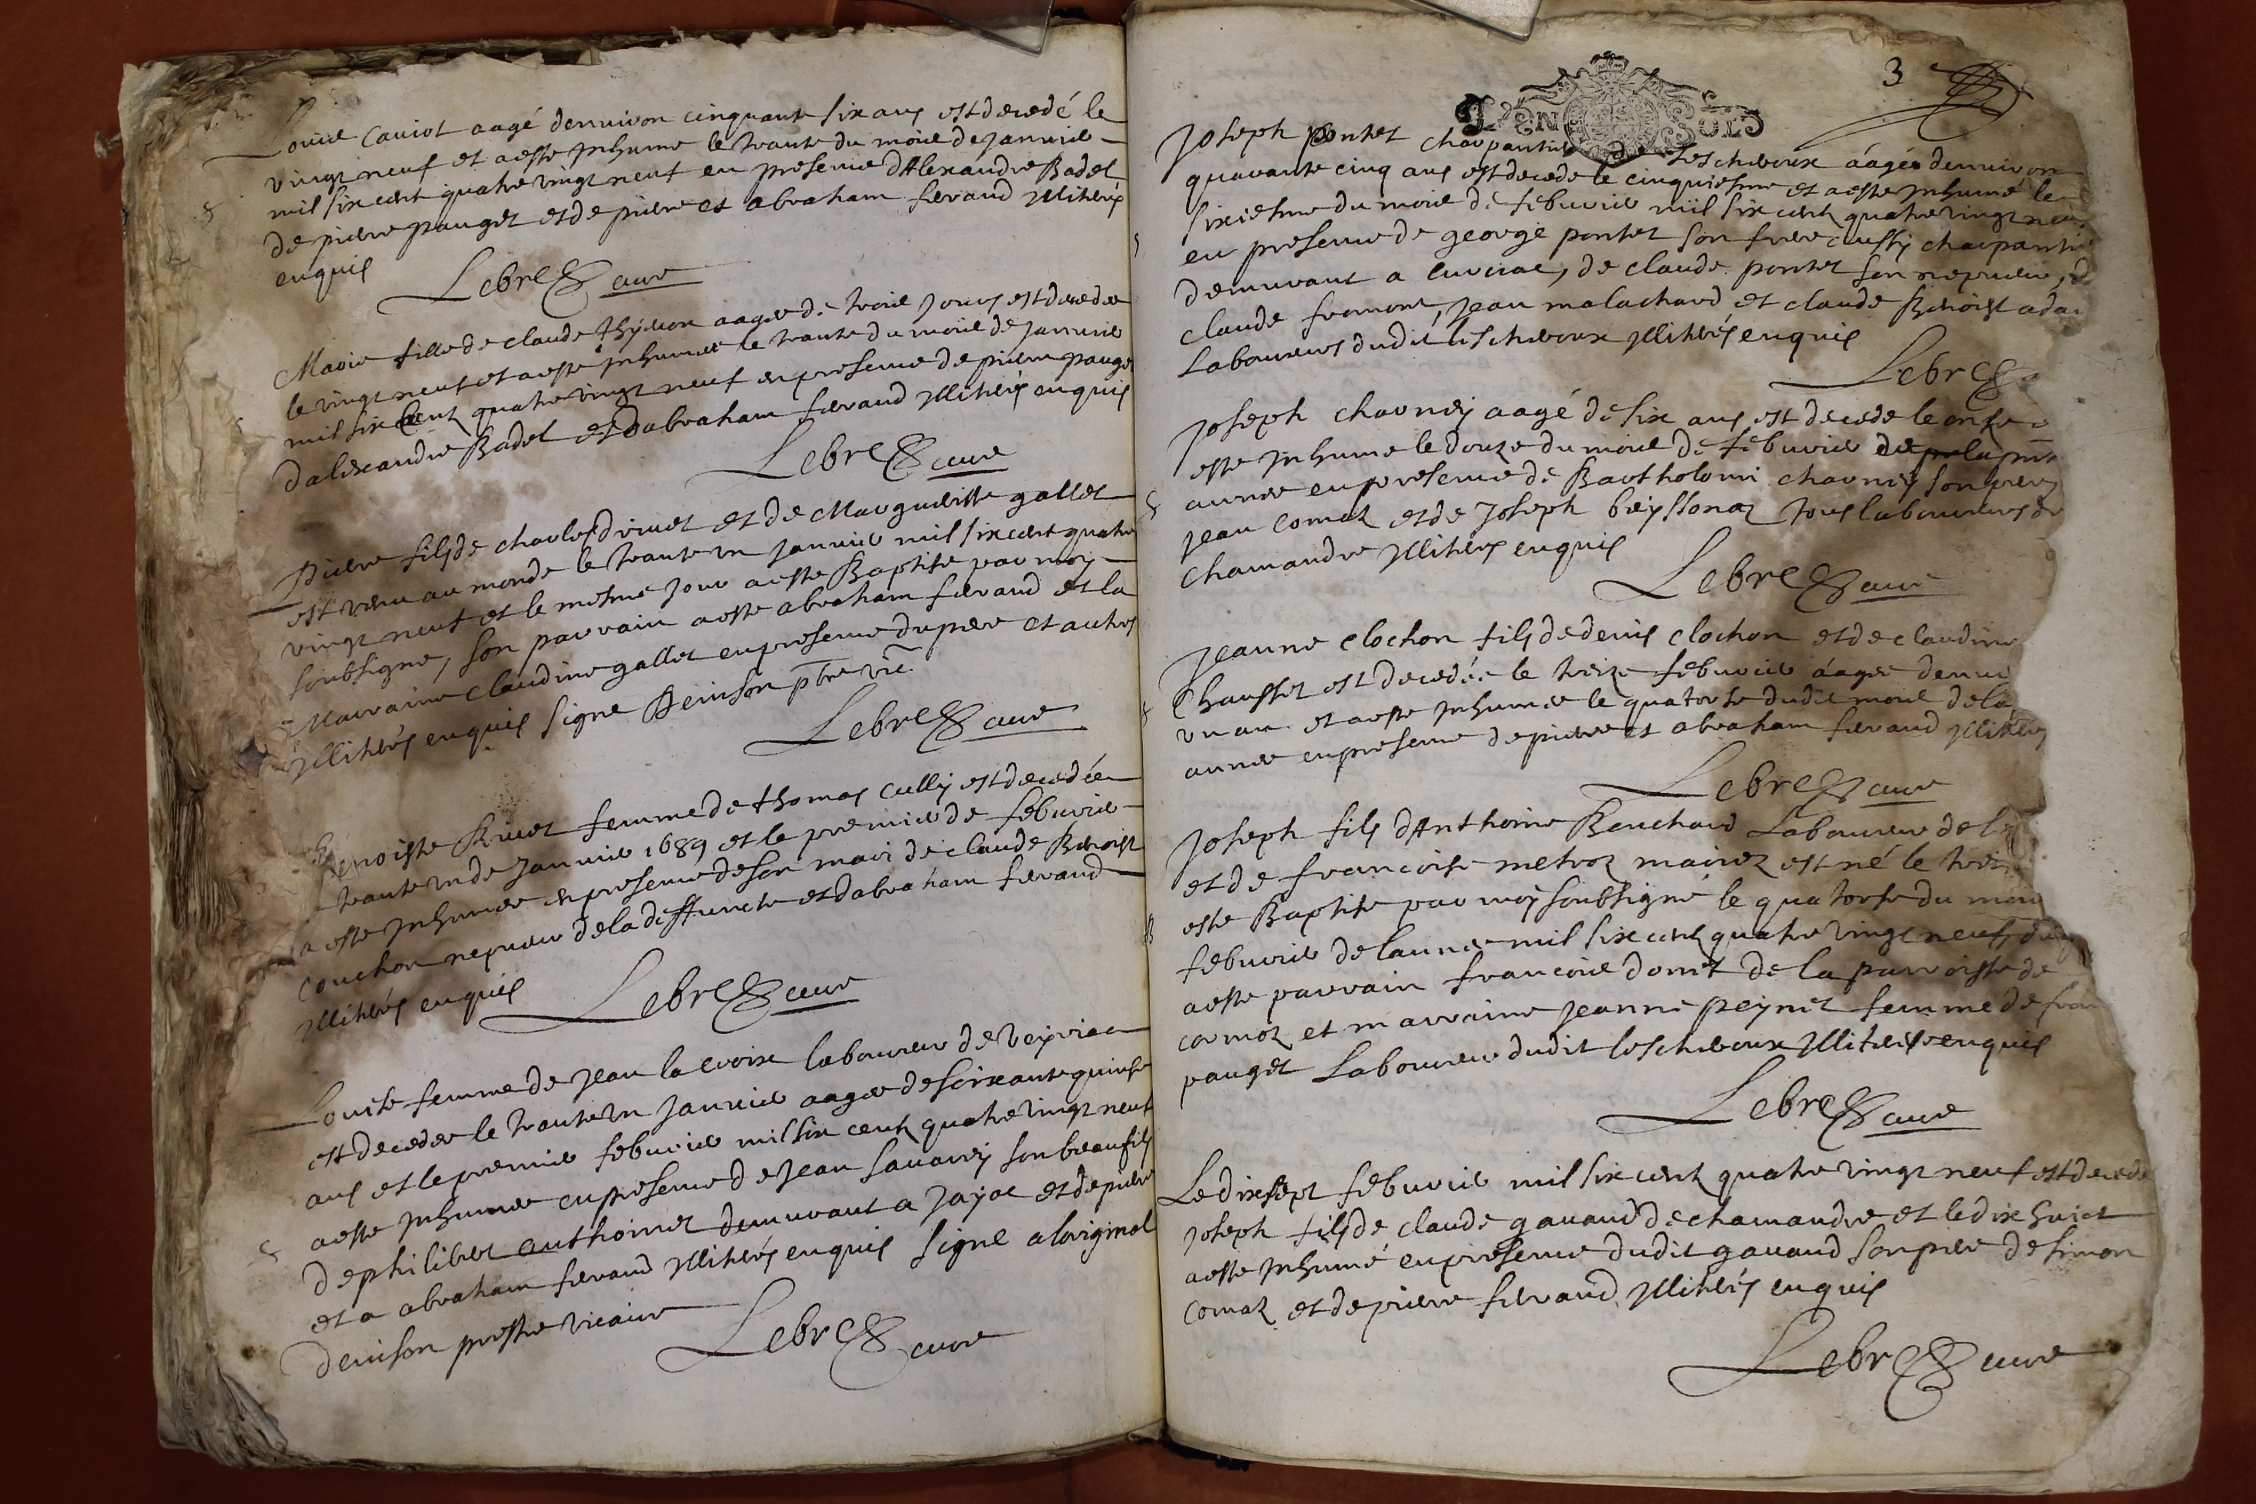 Louis Caviot aagé denviron cinquante six ans est decedé le
vingt neuf et a este Inhume le trante du mois de Janvier
mil six cent quatre vingt neuf en presence dAlexandre Badel
de pierre pauget et de pierre et abraham feraud Illiterés
enquis
Lebre cure
Marie fille de claude thyvon aagee de trois Jours est decedee
le vingt neuf et a este Inhumee le trante du mois de Janvier
mil six Cent quatre vingt neuf en presence de pierre pauget
dalexandre Badel et dabraham feraud Illiterés enquis
Lebre cure
Pierre fils de charles drivet et de Marguerisse gallet
est venu au monde le trante un Janvier mil six cent quatre
vingt neuf et le mesme Jour a este Baptisé par moy
soubsigne, son parrain a este abraham feraud et la
Marraine claudine gallet en presence du pere et autres
Illiterés enquis signe Denison pbre vic.
Lebre cure
Benoiste Rivet femme de thomas cully est decedée
trante un de Janvier 1689 et le premier de febvrier
a este Inhumee en presence de son mari de claude Benoist
couchon nepveu de la deffuncte et dabraham feraud
Illiterés enquis
Lebre cure
Louise femme de Jean la croix laboureur de Veyriac
est decedee le trante un Janvier aagee de soixante quinse
ans et le premier febvrier mil six cent quatre vingt neuf
a este Inhumee en presence de Jean savarey son beaufils
de philibert anthoinet demeurant a Jayac et de pierre
et a abraham feraud Illiterés enquis signe a loriginal
denison prestre vicaire
Lebre cure
3
DEN SOLS
Joseph pontet charpantier de Lescheroux áagée denviron
quarante cinq ans est decede le cinquiesme et a este Inhumé le
sixiesme du mois de febvrier mil six cent quatre vingt neuf
en presence de george pontet son frere aussy charpantier
demeurant a curciac, de claude pontet son nepveu, de
claude fromont, Jean malachard et claude Benoist
Laboureurs dudit lescheroux Illiterés enquis
Lebre
Joseph charney aagé de six ans est decede le onse
este Inhume le douze du mois de febvrier de la
annee en presence de Bartholomi charney son pere
Jean comaz et de Joseph beyssonaz tous laboureurs de
chamandre Illiterés enquis
Lebre cure
Jeanne clochon fils de denis clochon et de claudine
Chausset est decedée le treize febvrier áagee denvi
un an et a este Inhumee le quatorse dudit mois de la
annee en presence de pierre et abraham feraud Illiterés
Lebre cure
Joseph fils dAnthoine Bouchard Laboureur de
et de francoise metroz mariez est né le treize
este Baptise par moy soubsigné le quatorse du mois
febvrier de lannee mil six cent quatre vingt neuf, du
a este parrain francois donet de la parroisse de
cormoz et marraine Jeanne peynet femme de fran
pauget Laboureur dudit lescheroux Illiterés enquis
Lebre cure
Le dixsept febvrier mil six cent quatre vingt neuf est decede
Joseph fils de claude gavaud de chamandre et le dix huict
a este Inhumé en presence dudit gavaud son pere de simon
comaz et de pierre feraud Illiterés enquis
Lebre cure